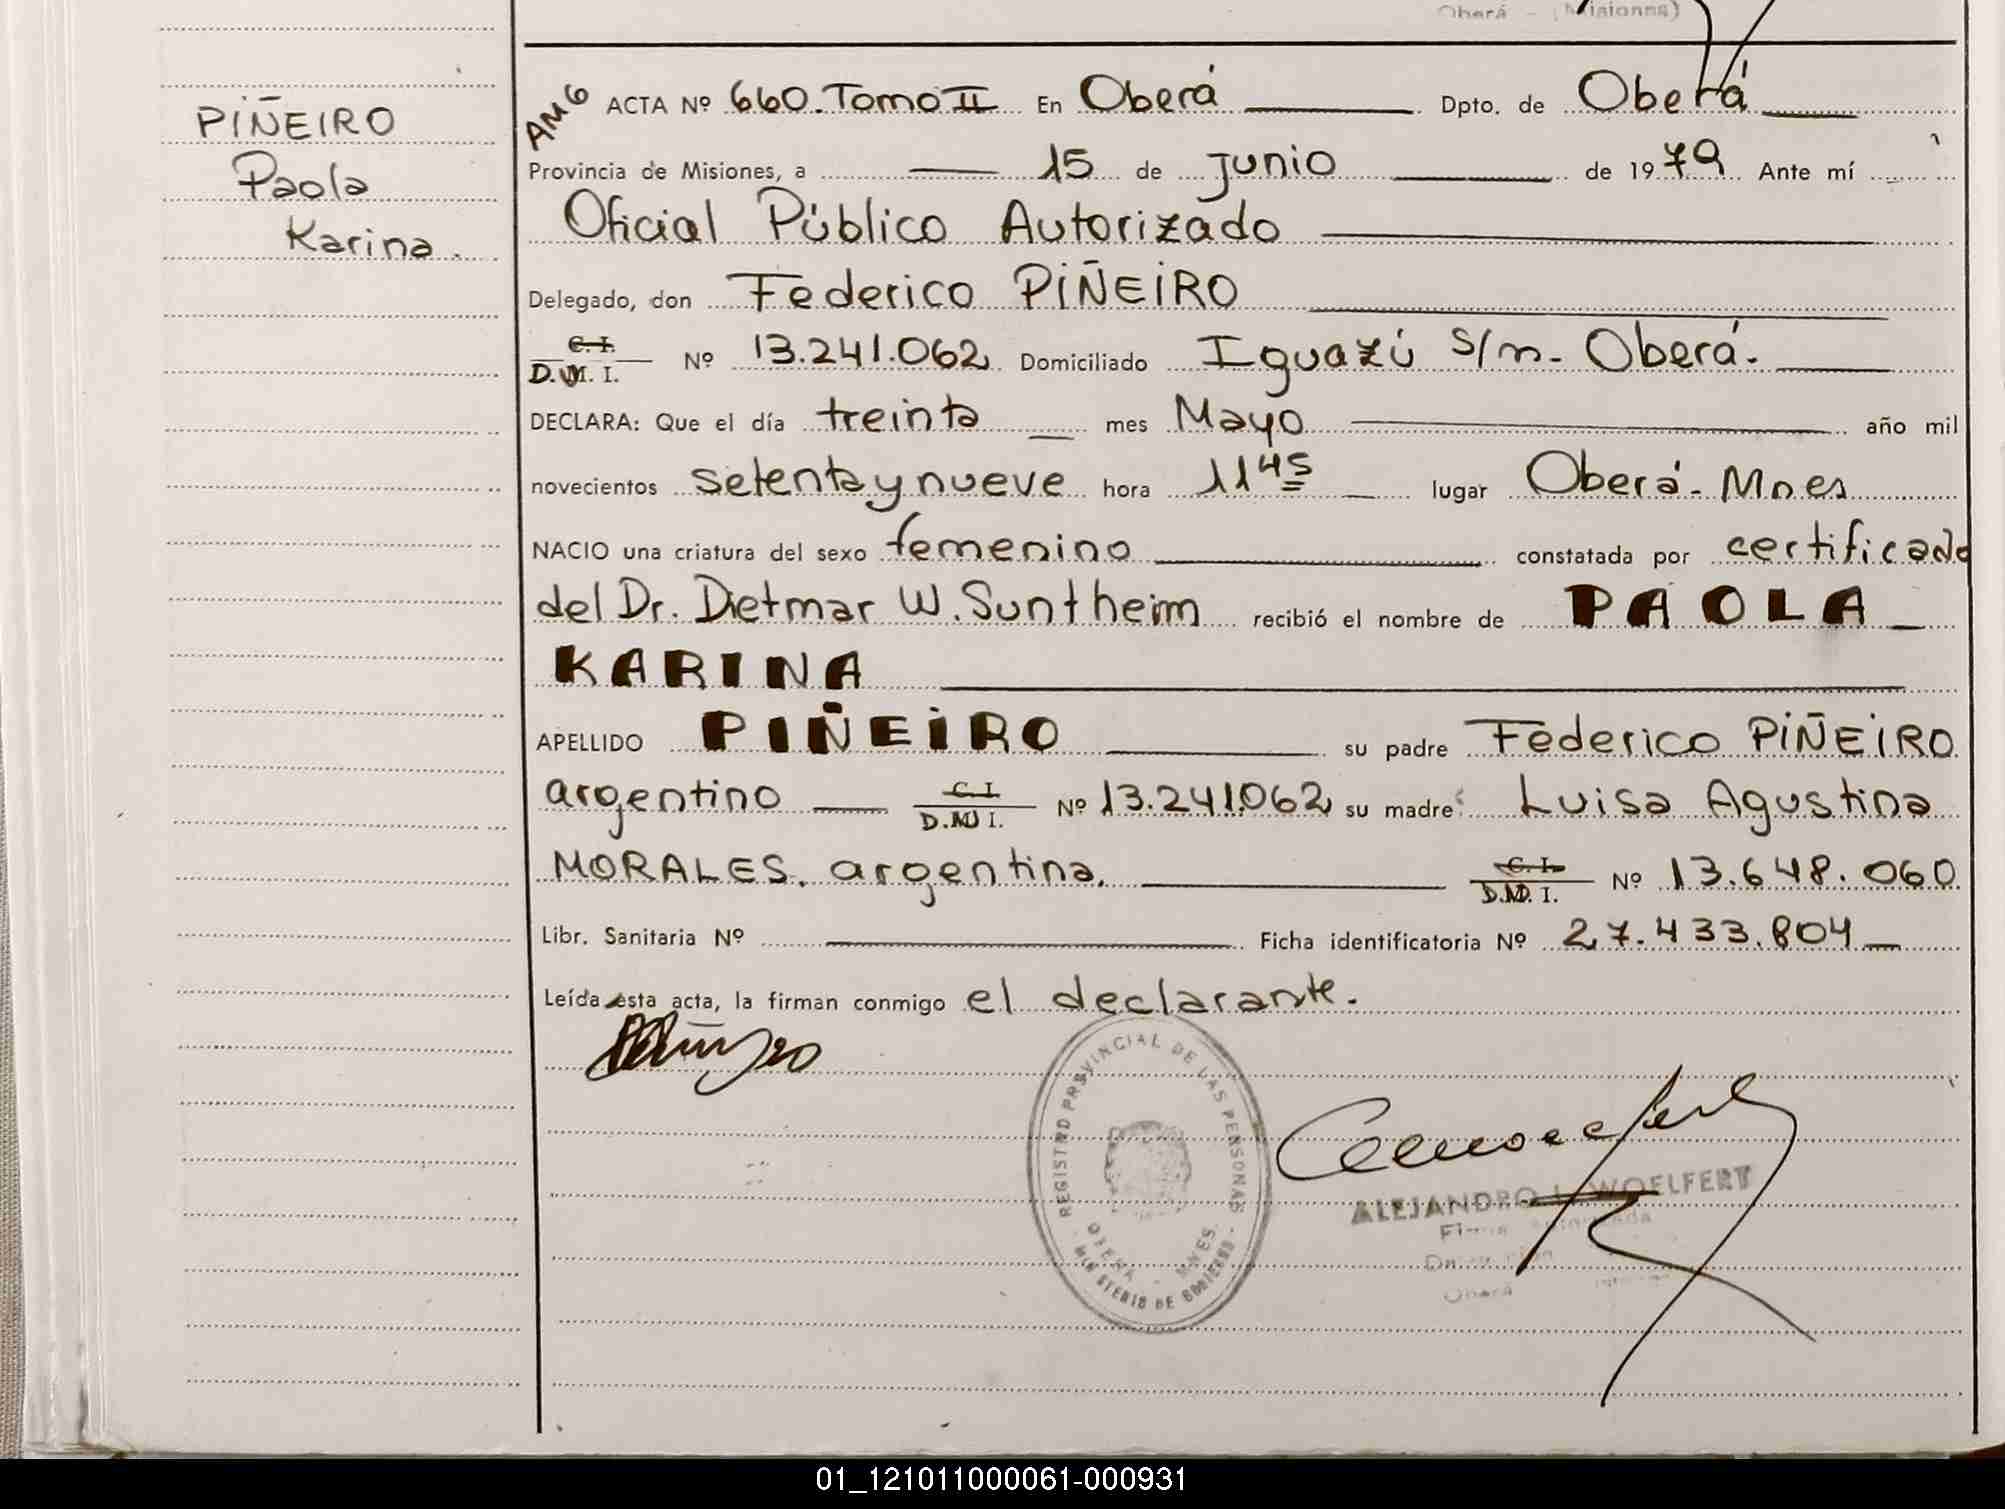 Oberá - (Misiones)
PIÑEIRO
Paola
Karina.
AM6 ACTA Nº 660. Tomo II En Oberá Dpto. de Oberá
Provincia de Misiones, a 15 de junio de 1979 Ante mí
Oficial Público Autorizado
Delegado, don Federico PIÑEIRO
C. I. D. N. I. Nº 13.241.062 Domiciliado Iguazú s/n - Oberá.
DECLARA: Que el día treinta mes Mayo año mil
novecientos setenta y nueve hora 11 45 lugar Oberá - Mnes
NACIO una criatura del sexo femenino constatada por certificado
del Dr. Dietmar W. Suntheim recibió el nombre de PAOLA
KARINA
APELLIDO PIÑEIRO su padre Federico PIÑEIRO
argentino C. I. D. N. I. Nº 13.241.062 su madre Luisa Agustina
MORALES. argentina. C. I. D. N. I. Nº 13.648.060
Libr. Sanitaria Nº Ficha identificatoria Nº 27.433.804
Leída esta acta, la firman conmigo el declarante.
REGISTRO PROVINCIAL DE LAS PERSONAS
OBERA - MNES.
MINISTERIO DE GOBIERNO
ALEJANDRO L. WOELFERT
Firma Autorizada
Oberá
01_121011000061-000931